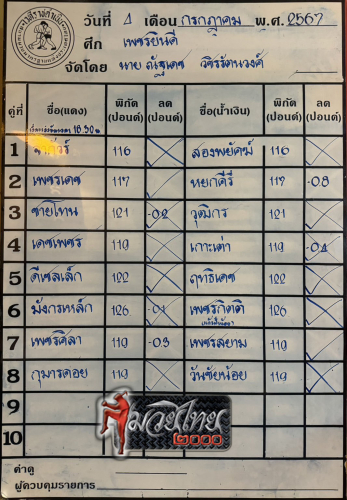 วันที่ 1 เดือน กรกฎาคม พ.ศ. 2567
ศึก เพชรยินดี
จัดโดย นาย ณัฐเดช วชิรรัตนวงศ์
คู่ที่ ชื่อ(แดง) พิกัด (ปอนด์) ลด (ปอนด์) ชื่อ(น้ำเงิน) พิกัด (ปอนด์) ลด (ปอนด์)
1 116 สองพยัคฆ์ 116
2 เพชรเดช 117 หยกคีรี -0.8
3 ชายโทน 121 -0.2 วุฒิกร 121
4 เดชเพชร 119 เกาะเต่า 119 -0.4
5 ดีเซลเล็ก 122 ฤทธิเดช 122
6 มังกรเหล็ก 126 -0.1 เพชรกิตติ 126
7 เพชรศิลา 119 -0.3 เพชรสยาม 119
8 กุมารดอย 119 วันชัยน้อย 119
9
10
มวยไทย
2000
ค่าดู
ผู้ควบคุมรายการ